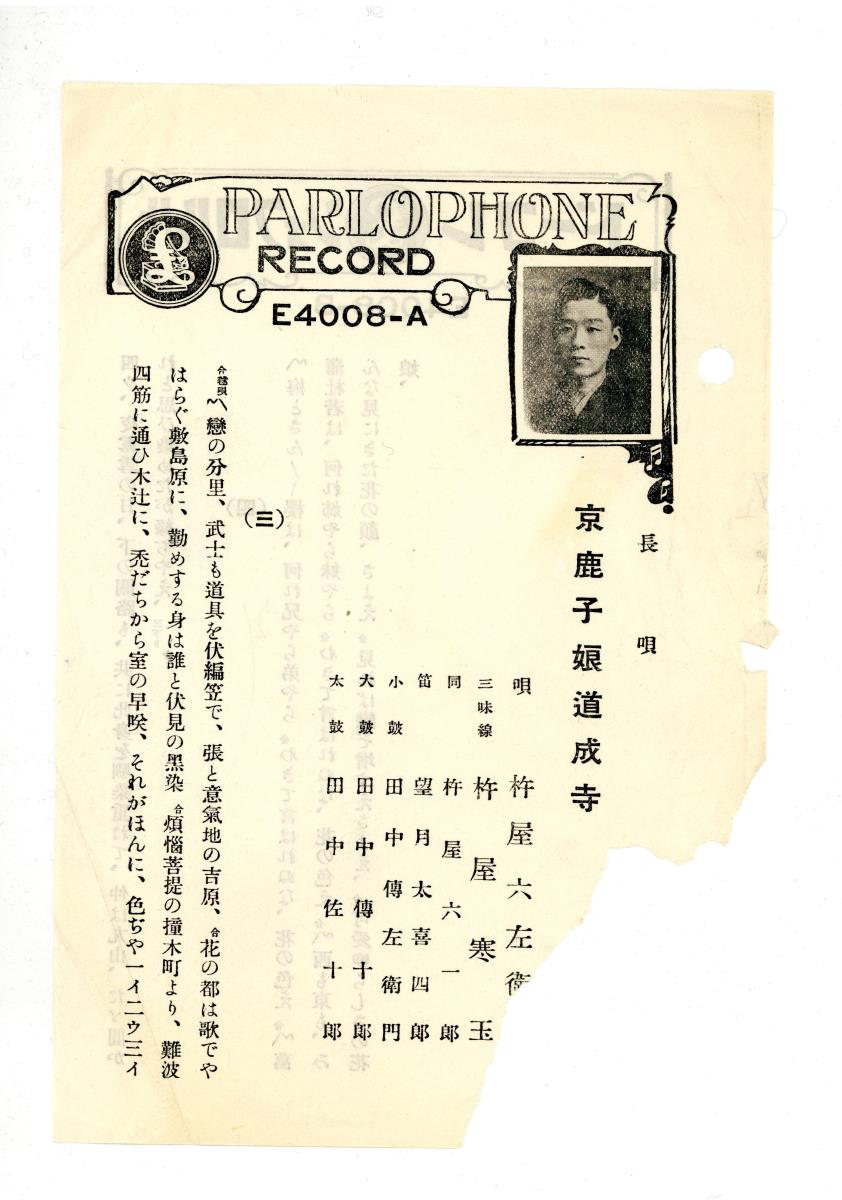 PARLOPHONE
RECORD
E4008-A
長唄
京鹿子娘道成寺
唄 杵屋六左衞
三味線 杵屋寒玉
同 杵屋六一郎
笛 望月太喜四郎
小鼓 田中傳左衞門
大鼓 田中傳十郎
太鼓 田中佐十郎
(三)
〽戀の分里、武士も道具を伏編笠で、張と意氣地の吉原、合花の都は歌でや
はらぐ敷島原に、勤めする身は誰と伏見の黑染 合煩惱菩提の撞木町より、難波
四筋に通ひ木辻に、禿だちから室の早咲、それがほんに、色ぢや一イ二ウ三イ